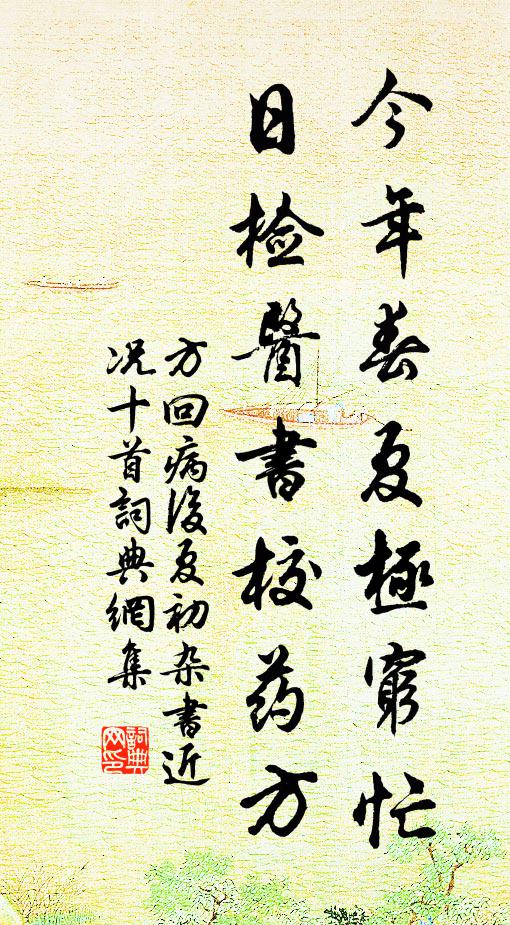 今年春夏極窮忙
日检醫書校药方
方回病後夏初杂書近
况十首詞典網集
詞典
网印